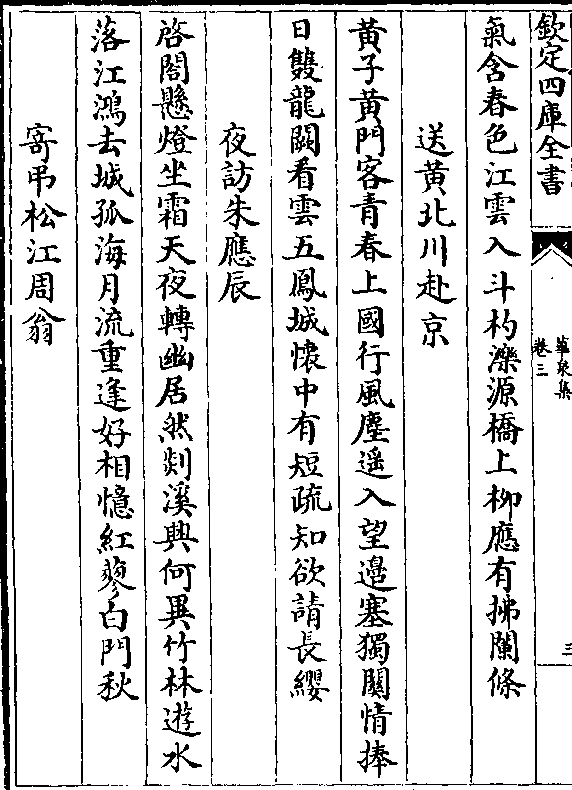 欽定四庫全書
華泉集
卷三
三
氣含春色江雲入斗杓濼源橋上柳應有拂闌條
送黄北川赴京
黄子黄門客青春上國行風塵遥入望邊塞獨關情捧
日雙龍闕看雲五鳳城懐中有短疏知欲請長纓
夜訪朱應辰
啓閣懸燈坐霜天夜轉幽居然剡溪興何異竹林遊水
落江鴻去城孤海月流重逢好相憶紅蓼白門秋
寄弔松江周翁